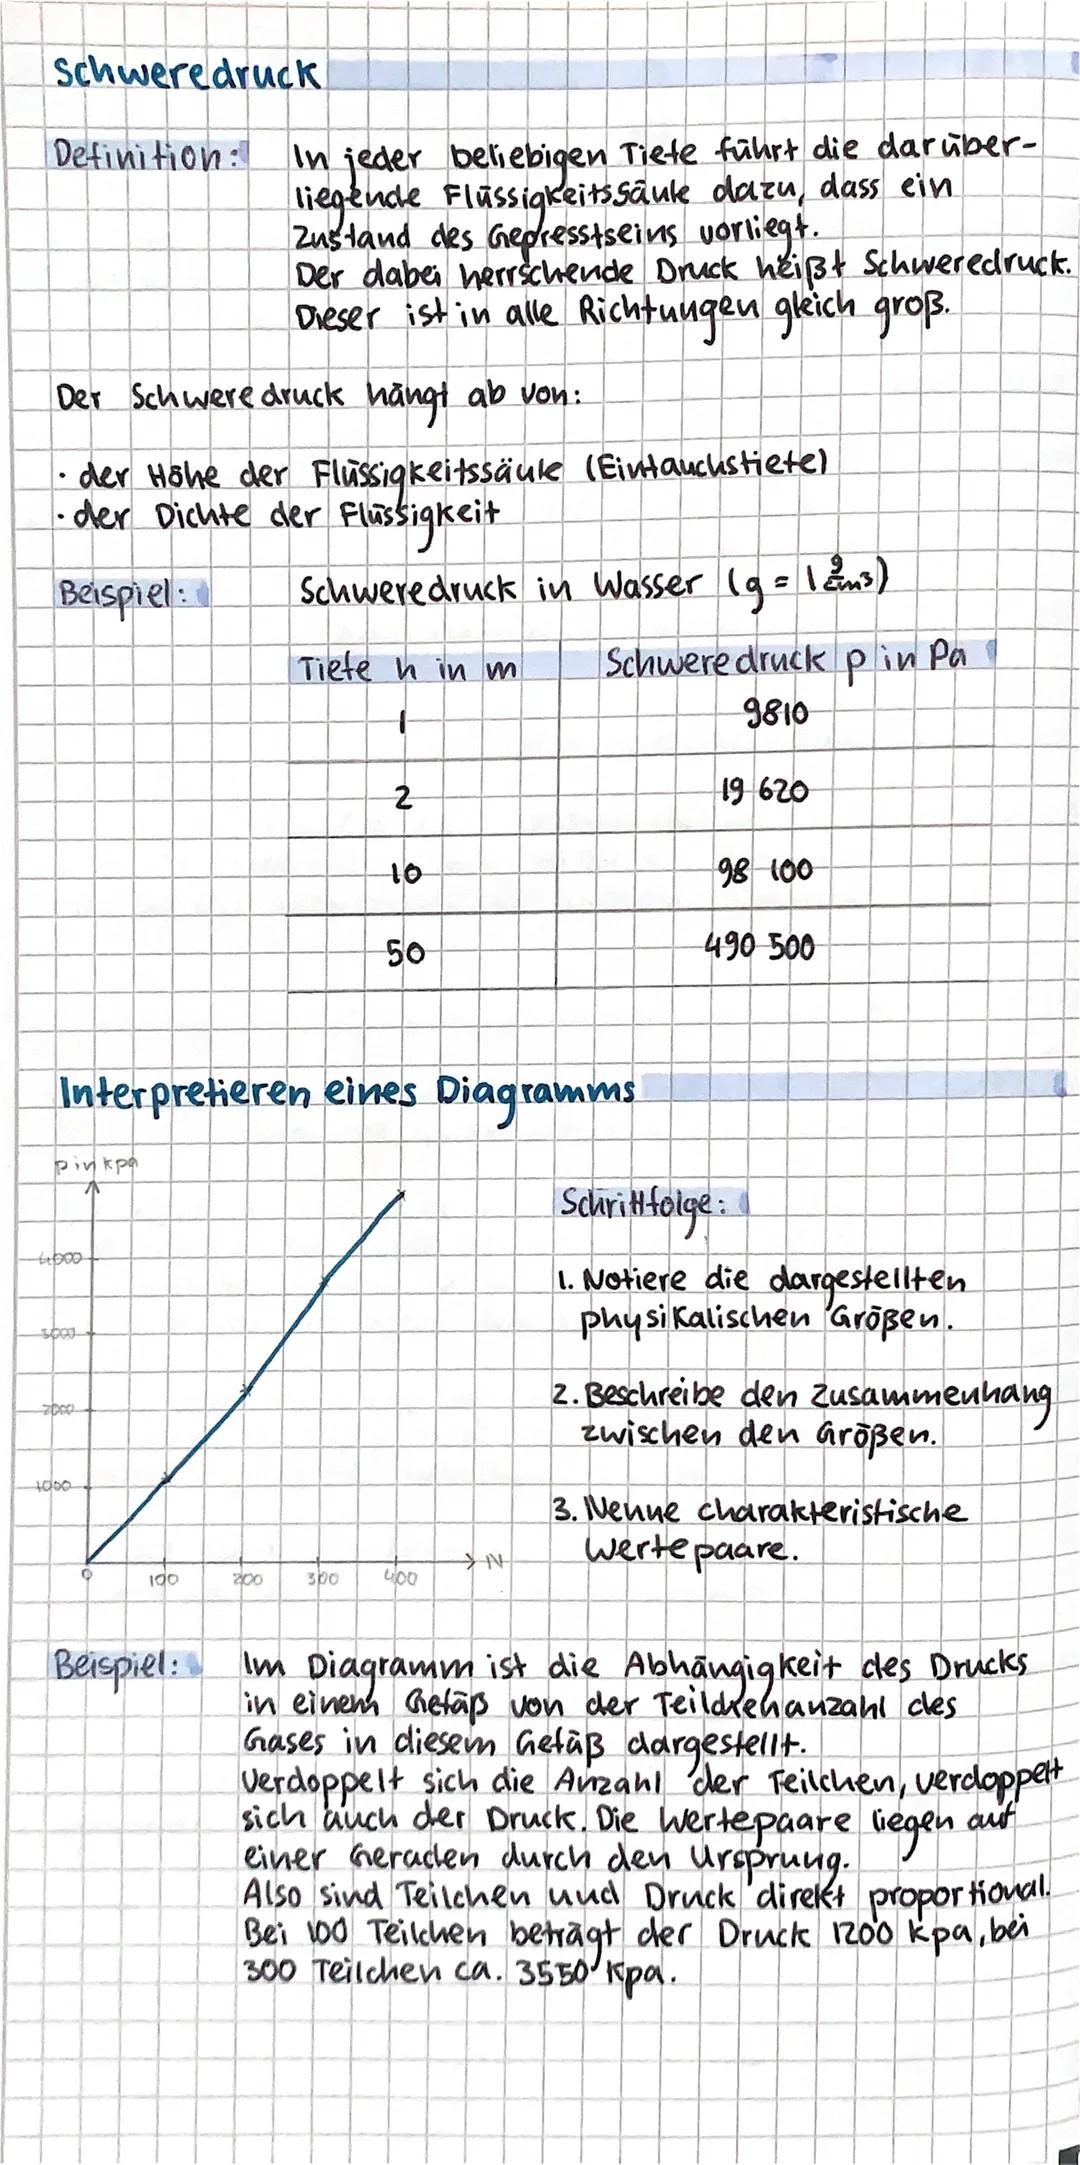 Schweredruck
Definition: In jeder beliebigen Tiefe führt die darüber-
liegende Flüssigkeitssäule dazu, dass ein
Zustand des Gepresstseins vorliegt.
Der dabei herrschende Druck heißt Schweredruck.
Dieser ist in alle Richtungen gleich groß.
Der Schweredruck hängt ab von:
· der Höhe der Flüssigkeitssäule (Eintauchstiefe)
· der Dichte der Flüssigkeit
Beispiel: Schweredruck in Wasser (g = 1 g/cm³)
Tiefe h in m Schweredruck p in Pa
1 9810
2 19 620
10 98 100
50 490 500
Interpretieren eines Diagramms
p in kpa
4000
3000
2000
1000
0 100 200 300 400 N
Schrittfolge:
1. Notiere die dargestellten
physikalischen Größen.
2. Beschreibe den Zusammenhang
zwischen den Größen.
3. Nenne charakteristische
Wertepaare.
Beispiel: Im Diagramm ist die Abhängigkeit des Drucks
in einem Gefäß von der Teilchenanzahl des
Gases in diesem Gefäß dargestellt.
Verdoppelt sich die Anzahl der Teilchen, verdoppelt
sich auch der Druck. Die Wertepaare liegen auf
einer Geraden durch den Ursprung.
Also sind Teilchen und Druck direkt proportional.
Bei 100 Teilchen beträgt der Druck 1200 kpa, bei
300 Teilchen ca. 3550 kpa.